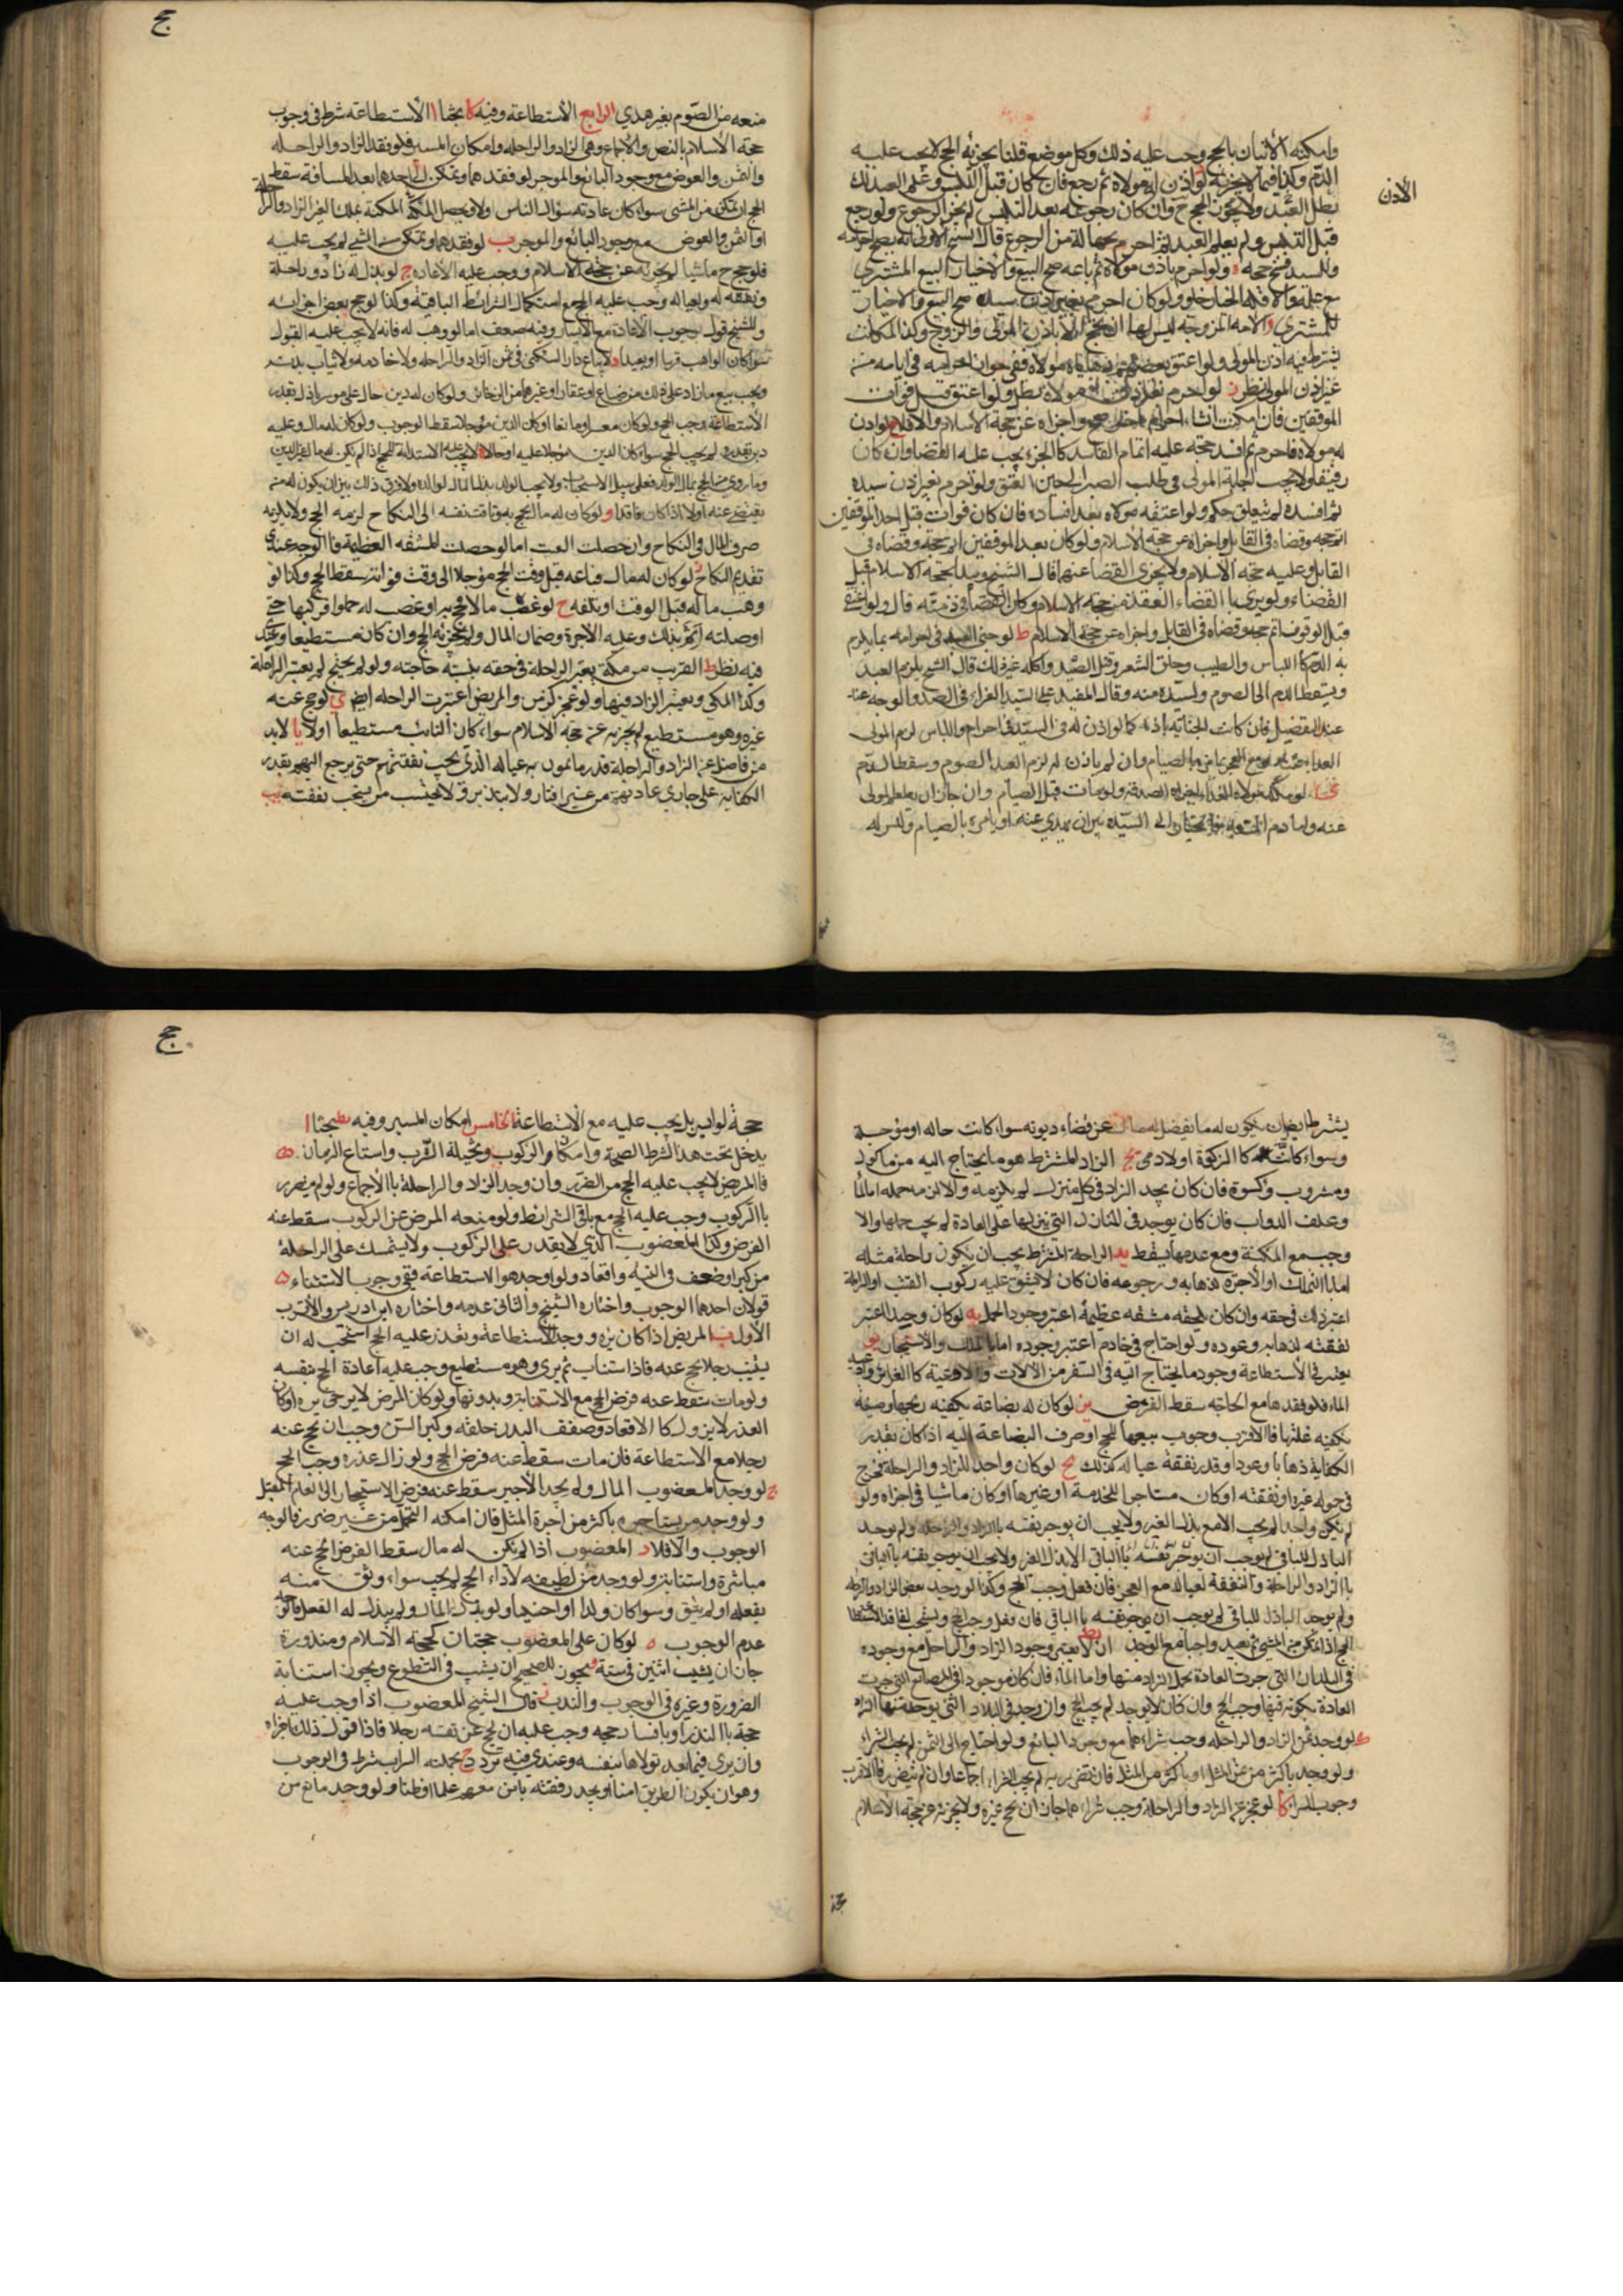 وامكنه الأتيان بالحج وجب عليه ذلك وكل موضع قلنا يجزئه الحج لا يجب عليه
الدم وكذا فيما لا يجزئه لو اذن له مولاه ثم رجع فان كان قبل التلبس وعلم العبد ذلك
بطل
الأذن
قبل التلبس ولم يعلم العبد ثم احرم
من الرجوع قال الشيخ الأولى انه يصح احرامه
وللسيد فسخ حجه ه ولو احرم باذن مولاه ثم باعه صح البيع والأخيار البيع المشتري
مع علمه والا فله الخيار
للمشتري و الأمه المزوجه ليس لها ان تحج الا باذن المولى والزوج وكذا المكاتب
غير اذن المولى نظر ز لو احرم بغير اذن مولاه
الموقفين فان امكنه انشاء احرام
واجزاه عن حجة الأسلام والا فلا ح لو اذن
له مولاه فاحرم ثم افسد حجته عليه اتمام الفاسد كالحر ويجب عليه القضاء وان كان
رقيقا ولا يجب اجابة المولى في طلب الصبر الى حين العتق ولو احرم بغير اذن سيده
ثم افسده لم يتعلق حكم ولو اعتقه مولاه بعد افساده فان كان فوات قبل احد الموقفين
اتم حجه وقضاه في القابل واجزاه عن حجة الأسلام ولو كان بعد الموقفين اتم حجه وقضاه في
القابل وعليه حجة الأسلام ولا يجزي القضاء عنهما قال الشيخ ويبدأ بحجة الاسلام قبل
القضاء ولو بدء بالقضاء انعقد عن حجة الاسلام وكان القضاء في ذمته قال ولو اعتق
قبل الوقوف اتم حجه وقضاه في القابل واجزاه عن حجة الأسلام ط لو جنى العبد في احرامه بما يلزم
به الدم كاللباس والطيب وحلق الشعر وقتل الصيد واكله غير ذلك قال الشيخ يلزم العبد
ويسقط الدم الى الصوم
منه وقال المفيد على السيد الفداء في الصيد والوجه عندي
التفصيل فان كانت الجناية باذنه كما لو اذن له
لزم المولى
وان لم ياذن له لزم العبد الصوم وسقط الدم
ي لو
ولو مات قبل الصيام
عنه واما دم المتعه
الى السيد بين ان يهدي عنه او يامره بالصيام وليس له
حج
منعه من الصوم بغير هدي الرابع الأستطاعة وفيه كا بحثا ا الأستطاعة شرط في وجوب
حجة الأسلام بالنص والأجماع وهي الزاد والراحله وامكان المسير فلو فقد الزاد والراحله
والثمن والعوض مع وجود البائع والموجر لو فقدهما وتمكن
بعد المسافة سقط
الحج ان تمكن من المشي سواء كان عادته سؤال الناس اولا ويحصل
المكنة بملك العين الزاد والراحلة
او الثمن والعوض مع وجود البائع والموجر ب لو فقدهما وتمكن من المشي لم يجب عليه
فلو حج ماشيا لم يجزئه عن حجة الاسلام ووجب عليه الأعاده ج لو بذل له زاد وراحلة
ونفقه له ولعياله وجب عليه الحج مع استكمال الشرائط الباقية وكذا لو حج بعض اخوانه
وللشيخ قول بوجوب الأعادة مع الأيسار وفيه ضعف اما لو وهب له فانه لا يجب عليه القبول
سواء كان الواهب قريبا او بعيدا د لا تباع دار السكنى في ثمن الزاد والراحله ولا خادمه ولا ثياب بدنه
ويجب بيع ما زاد على ذلك من ضياع او عقار او غيرهما من الذخائر ولو كان له دين حال على موسر باذل بقدر
الأستطاعة وجب الحج ولو كان معسرا او مانعا او كان الدين مؤجلا سقط الوجوب ولو كان له مال وعليه
دين بقدره لم يجب الحج سواء كان الدين مؤجلا عليه او حالا ه لا يجب عليه الاستدانة للحج اذا لم يكن له
وما روي من الحج بمال الولد فعلى سبيل الاستحباب ولا يجب للولد بذل مال لوالده ولا فرق ذلك بين ان يكون له من
يقضي عنه اولا اذا كان فاقدا و لو كان له مال يحج به وتاقت نفسه الى النكاح لزمه الحج ولا يلزمه
صرف المال في النكاح وان حصلت العنت اما لو حصلت المشقه العظيمة فالوجه عندي
تقديم النكاح ز لو كان له مال فباعه قبل وقت الحج مؤجلا الى وقت فواته سقط الحج وكذا لو
وهب ماله قبل الوقت او تلفه ح لو غصب مالا فحج به او غصب له حمولة فركبها حتى
اوصلته اثم بذلك وعليه الأجرة وضمان المال ولم يجزئه الحج وان كان مستطيعا وعندي
فيه نظر ط القريب من مكة يعتبر الراحلة في حقه بنسبة حاجته ولو لم يحتج لم يعتبر الراحلة
وكذا المكي ويعتبر الزاد فيها ولو عجز كزمن والمريض اعتبرت الراحله ايض ي لو حج عنه
غيره وهو مستطيع لم يجزئه عن حجة الاسلام سواء كان النائب مستطيعا اولا يا لابد
من فاضل عن الزاد والراحلة قدر ما يمون به عياله الذي يجب نفقتهم حتى يرجع اليهم بقدر
الكفاية على جاري عادتهم من غير اقتار ولا تبذير ولا يحتسب من يستحب نفقته يب
يشترط ايض ان يكون له ما يفضل له من مال عن قضاء ديونه سواء كانت حاله او مؤجلة
وسواء كانت
كالزكوة او لادمي يج الزاد المشترط هو ما يحتاج اليه من ماكول
ومشروب وكسوة فان كان يجد الزاد في كل منزل لم يلزمه والا لزمه حمله اما الماء
وعلف الدواب فان كان يوجد في المنازل التي ينزلها على العادة لم يجب حملها والا
وجب مع المكنة ومع عدمها يسقط يد الراحلة المشترط يجب ان يكون راحلة مثله
اما بالتملك او الأجرة لذهابه ورجوعه فان كان لا يشق عليه ركوب القتب او الزاملة
اعتبر ذلك في حقه وان كان يلحقه مشقه عظيمة اعتبر وجود المحمل يه لو كان وحيدا اعتبر
نفقته لذهابه وعوده ولو احتاج في خادم اعتبر وجوده اما بالملك والأستيجار يو
يعتبر في الأستطاعة وجود ما يحتاج اليه في السفر من الآلات والأوعية كالغرائر واوعيه
الماء فلو فقدها مع الحاجة سقط الفرض يز لو كان له بضاعة يكفيه ربحها وضيعة
يكفيه غلتها فالاقرب وجوب بيعها للحج او صرف البضاعة اليه اذا كان بقدر
الكفاية ذهابا وعودا وقدر نفقة عياله كذلك يح لو كان واحدا للزاد والراحلة فخرج
في حوله غيره او نفقته او كان مستاجرا للخدمة او غيرها او كان ماشيا في اجزاه ولو
لم يكن واحدا لم يجب الا مع بذل الغير ولا يجب ان يوجر نفسه بالزاد والراحله ولو وجد
بالزاد والراحلة والنفقة لعياله مع العجز فان فعل وجب الحج وكذا لو وجد بعض الزاد والراحله
ولم يوجد الباذل للباقي لم يجب ان يوجر نفسه بالباقي فان فعل وجب الحج ويستحب لفاقد الاستطاعة
الحج اذا تمكن من المشي ثم يعيد واجبا مع الوجود يط ان لا يعتبر وجود الزاد والراحلة مع وجوده
في البلدان التي جرت العادة بحمل الزاد منها واما الماء فان كان موجودا في المواضع التي جرت
العادة بكونه فيها وجب الحج وان كان لا يوجد لم يجب الحج وان وجد في البلاد التي يوجد منها الزاد
ك لو وجد ثمن الزاد والراحله وجب شراءهما مع وجود البائع ولو احتاج الى الثمن لم يجب الشراء
ولو وجد باكثر من ثمن المثل او باكثر من المثل فان تضرر به لم يجب الشراء اجماعا وان لم يتضرر فالاقرب
وجوب الشراء كا لو عجز عن الزاد والراحلة وجب شراءهما جاز ان يحج غيره ولا يجزئه عن حجة الأسلام
حج
حجة لو ايسر بل يجب عليه مع الاستطاعة الخامس امكان المسير وفيه يط بحثا ا
يدخل تحت هذا الشرط الصحة وامكان الركوب وتخلية السرب واتساع الزمان
فالمريض لا يجب عليه الحج من الضرر وان وجد الزاد والراحلة بالأجماع ولو لم يتضرر
بالركوب وجب عليه الحج مع باقي الشرائط ولو منعه المرض عن الركوب سقط عنه
الفرض وكذا المعضوب الذي لا يقدر على الركوب ولا يتمسك على الراحلة
من كبر او ضعف في البنية واقعاد ولو اوجد هو الاستطاعة ففي وجوب الاستنابة
قولان احدهما الوجوب واختاره الشيخ والثاني عدمه واختاره ابن ادريس والأقرب
الأول ب المريض اذا كان برؤه ووجد الاستطاعة وتعذر عليه الحج استحب له ان
يثيب رجلا يحج عنه فاذا استناب ثم برئ وهو مستطيع وجب عليه اعادة الحج بنفسه
ولو مات سقط عنه فرض الحج مع الاستنابة وبدونها ولو كان المرض لا يرجى برؤه او كان
العذر لا يزول كالاقعاد وضعف البدن خلقه وكبر السن وجب ان يحج عنه
رجلا مع الاستطاعة فان مات سقط عنه فرض الحج ولو زال عذره وجب الحج
ج لو وجد المعضوب المال ولم يجد الأجير سقط عنه فرض الاستيجار الى العام المقبل
ولو وجد من يستاجره باكثر من اجرة المثل فان امكنه التحمل من غير ضرر فالوجه
الوجوب والا فلا د المعضوب اذا لم يكن له مال سقط الفرض الحج عنه
مباشرة واستنابة ولو وجد من يطيعه لأداء الحج لم يجب سواء وثق منه
بفعله او لم يثق وسواء كان ولدا او اجنبيا ولو بذل المال ولم يبذل له الفعل فالوجه
عدم الوجوب ه لو كان على المعضوب حجتان كحجة الأسلام ومنذورة
جاز ان يثيب اثنين في سنة و يجوز للصحيح ان يثيب في التطوع ويجوز استنابة
الضرورة وغيره في الوجوب والندب ز قال الشيخ المعضوب اذا وجب عليه
حجة بالنذر او بافساد حجه وجب عليه ان يحج عن نفسه رجلا فاذا فعل ذلك اجزاه
وان برئ فيما بعد تولاها بنفسه وعندي فيه تردد ح تخلية السرب شرط في الوجوب
وهو ان يكون الطريق امنا او يجد رفقة يامن معهم
ولو وجد مانع من